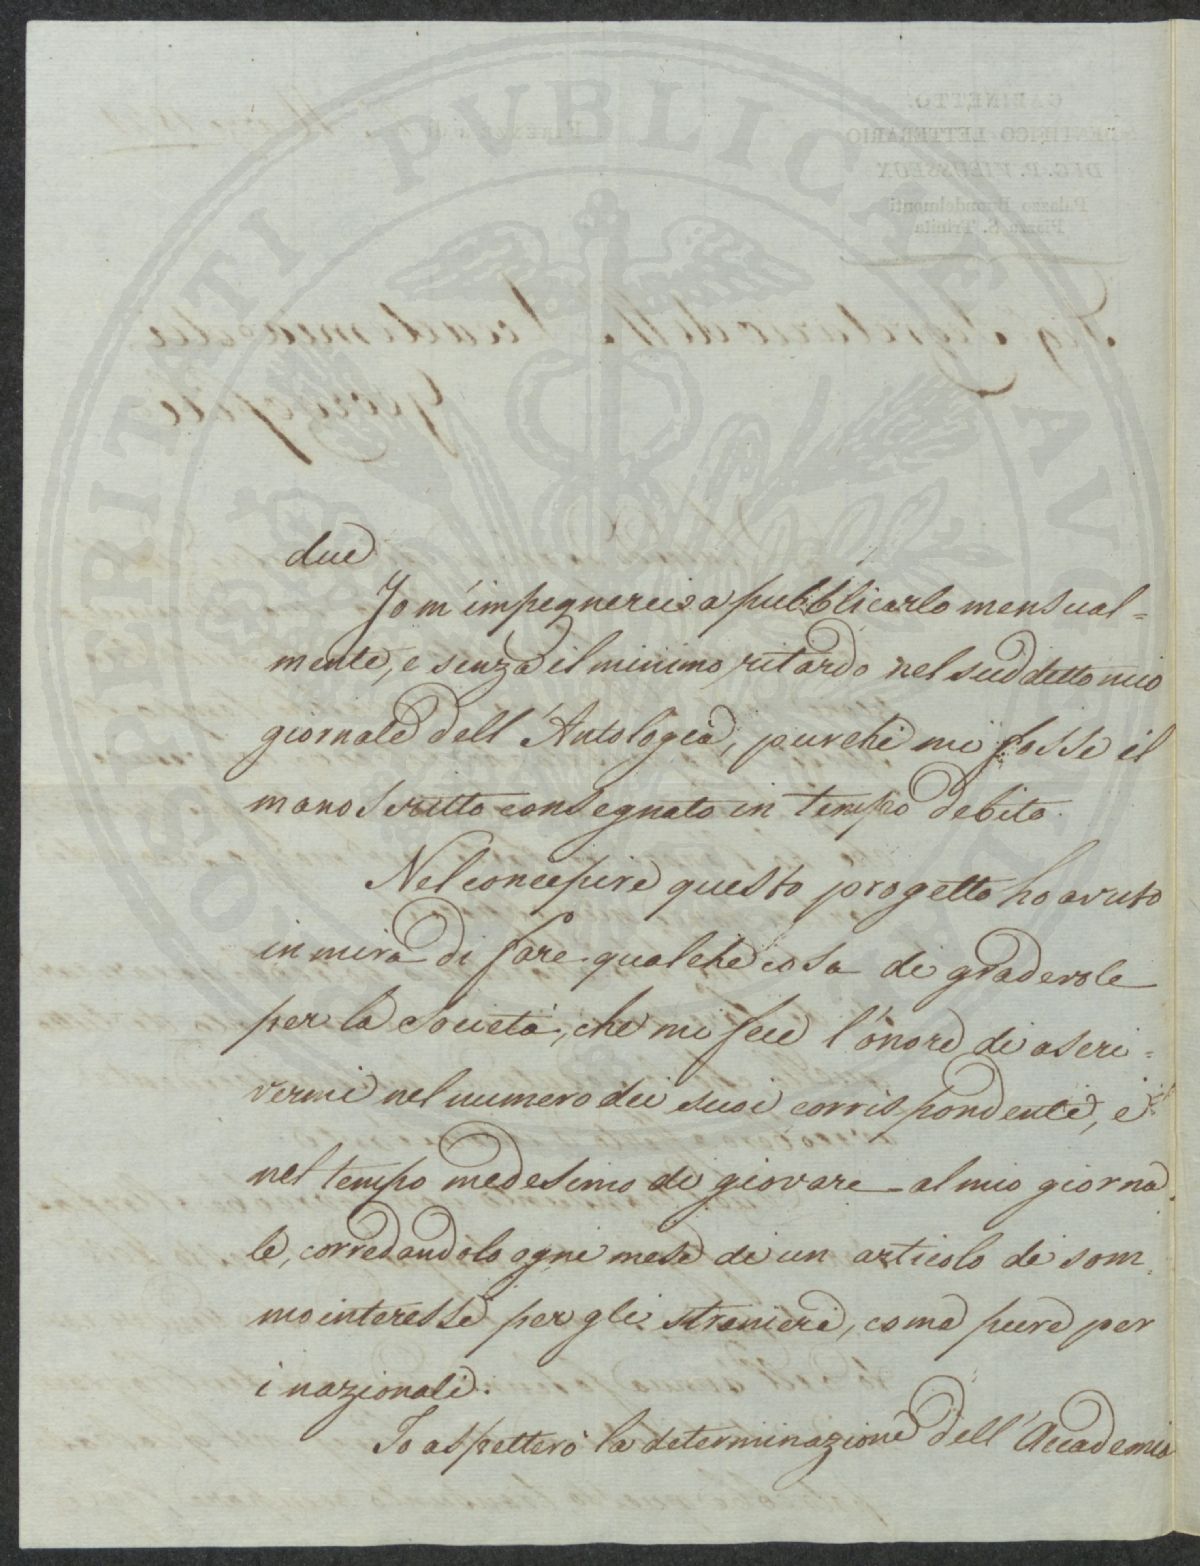 due
Io m'impegnerei a pubblicarlo mensual=
mente, e senza il minimo ritardo nel suddetto mio
giornale dell'Antologia, purché mi fosse il
manoscritto consegnato in tempo debito.
Nel concepire questo progetto ho avuto
in mira di fare qualche cosa di gradevole
per la Società, che mi fece l'onore di ascri=
vermi nel numero dei suoi corrispondenti, e
nel tempo medesimo di giovare al mio giorna
le, corredandolo ogni mese di un articolo di som
mo interesse per gli stranieri, come pure per
i nazionali.
Io aspetterò la determinazione dell'Accademia
PROSPERITATI PUBLICAE AVGENDAE
GABINETTO
SCIENTIFICO LETTERARIO
DI G. P. VIEUSSEUX
Palazzo Buondelmonti
Piazza S. Trinita
FIRENZE
Sig. Segretario dell'Accademia dei
Georgofili